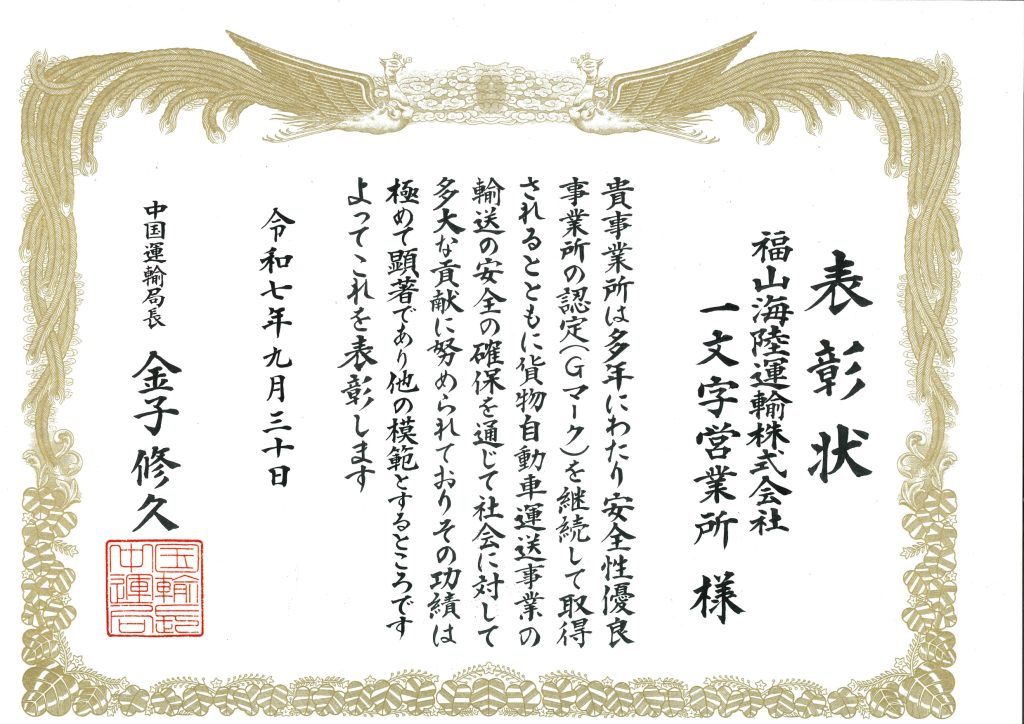 表彰状
福山海陸運輸株式会社
一文字営業所 様
貴事業所は多年にわたり安全性優良
事業所の認定(Gマーク)を継続して取得
されるとともに貨物自動車運送事業の
輸送の安全の確保を通じて社会に対して
多大な貢献に努められておりその功績は
極めて顕著であり他の模範とするところです
よってこれを表彰します
令和七年九月三十日
中国運輸局長 金子修久